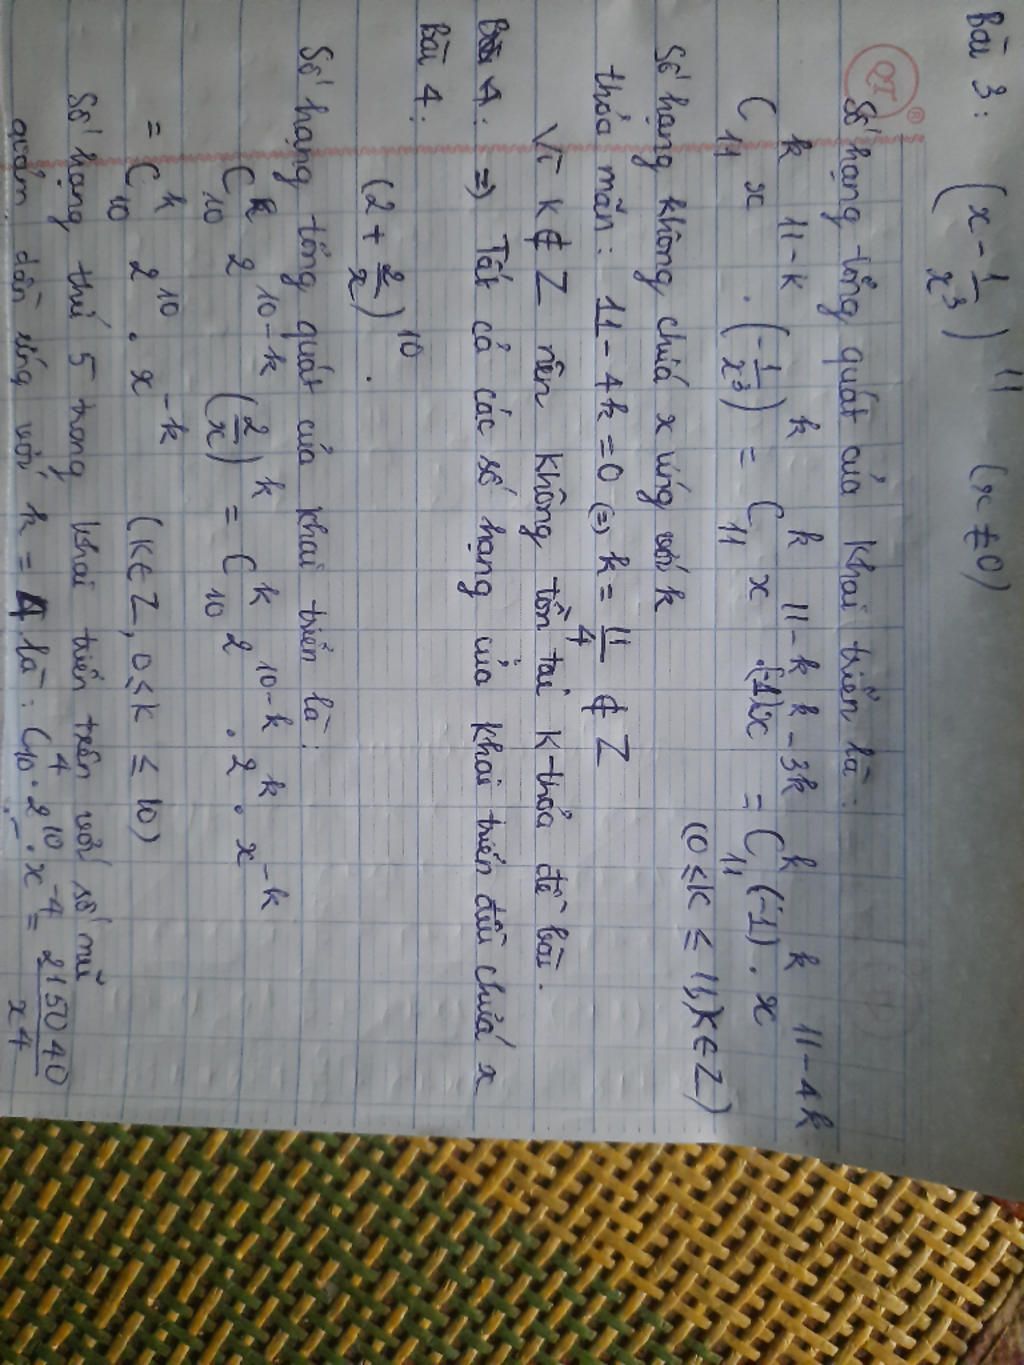 Bài 3: (x - 1/x³)¹¹ (x ≠ 0)
QT ®
Số hạng tổng quát của khai triển là:
C₁₁ᵏ x¹¹⁻ᵏ . (-1/x³)ᵏ = C₁₁ᵏ x¹¹⁻ᵏ .(-1)ᵏx⁻³ᵏ = C₁₁ᵏ (-1)ᵏ . x¹¹⁻⁴ᵏ
(0 ≤ K ≤ 11, K ∈ Z)
Số hạng không chứa x ứng với k
thỏa mãn: 11 - 4k = 0 (=) k = 11/4 ∉ Z
Vì K ∉ Z nên không tồn tại K thỏa đề bài.
=) Tất cả các số hạng của khai triển đều chứa x
Bài 4:
(2 + 2/x)¹⁰.
Số hạng tổng quát của khai triển là:
C₁₀ᵏ 2¹⁰⁻ᵏ (2/x)ᵏ = C₁₀ᵏ 2¹⁰⁻ᵏ . 2ᵏ . x⁻ᵏ
= C₁₀ᵏ 2¹⁰ . x⁻ᵏ (K ∈ Z, 0 ≤ K ≤ 10)
Số hạng thứ 5 trong khai triển trên với số mũ
giảm dần ứng với k = 4 là: C₁₀⁴ . 2¹⁰ . x⁻⁴ = 215040/x⁴